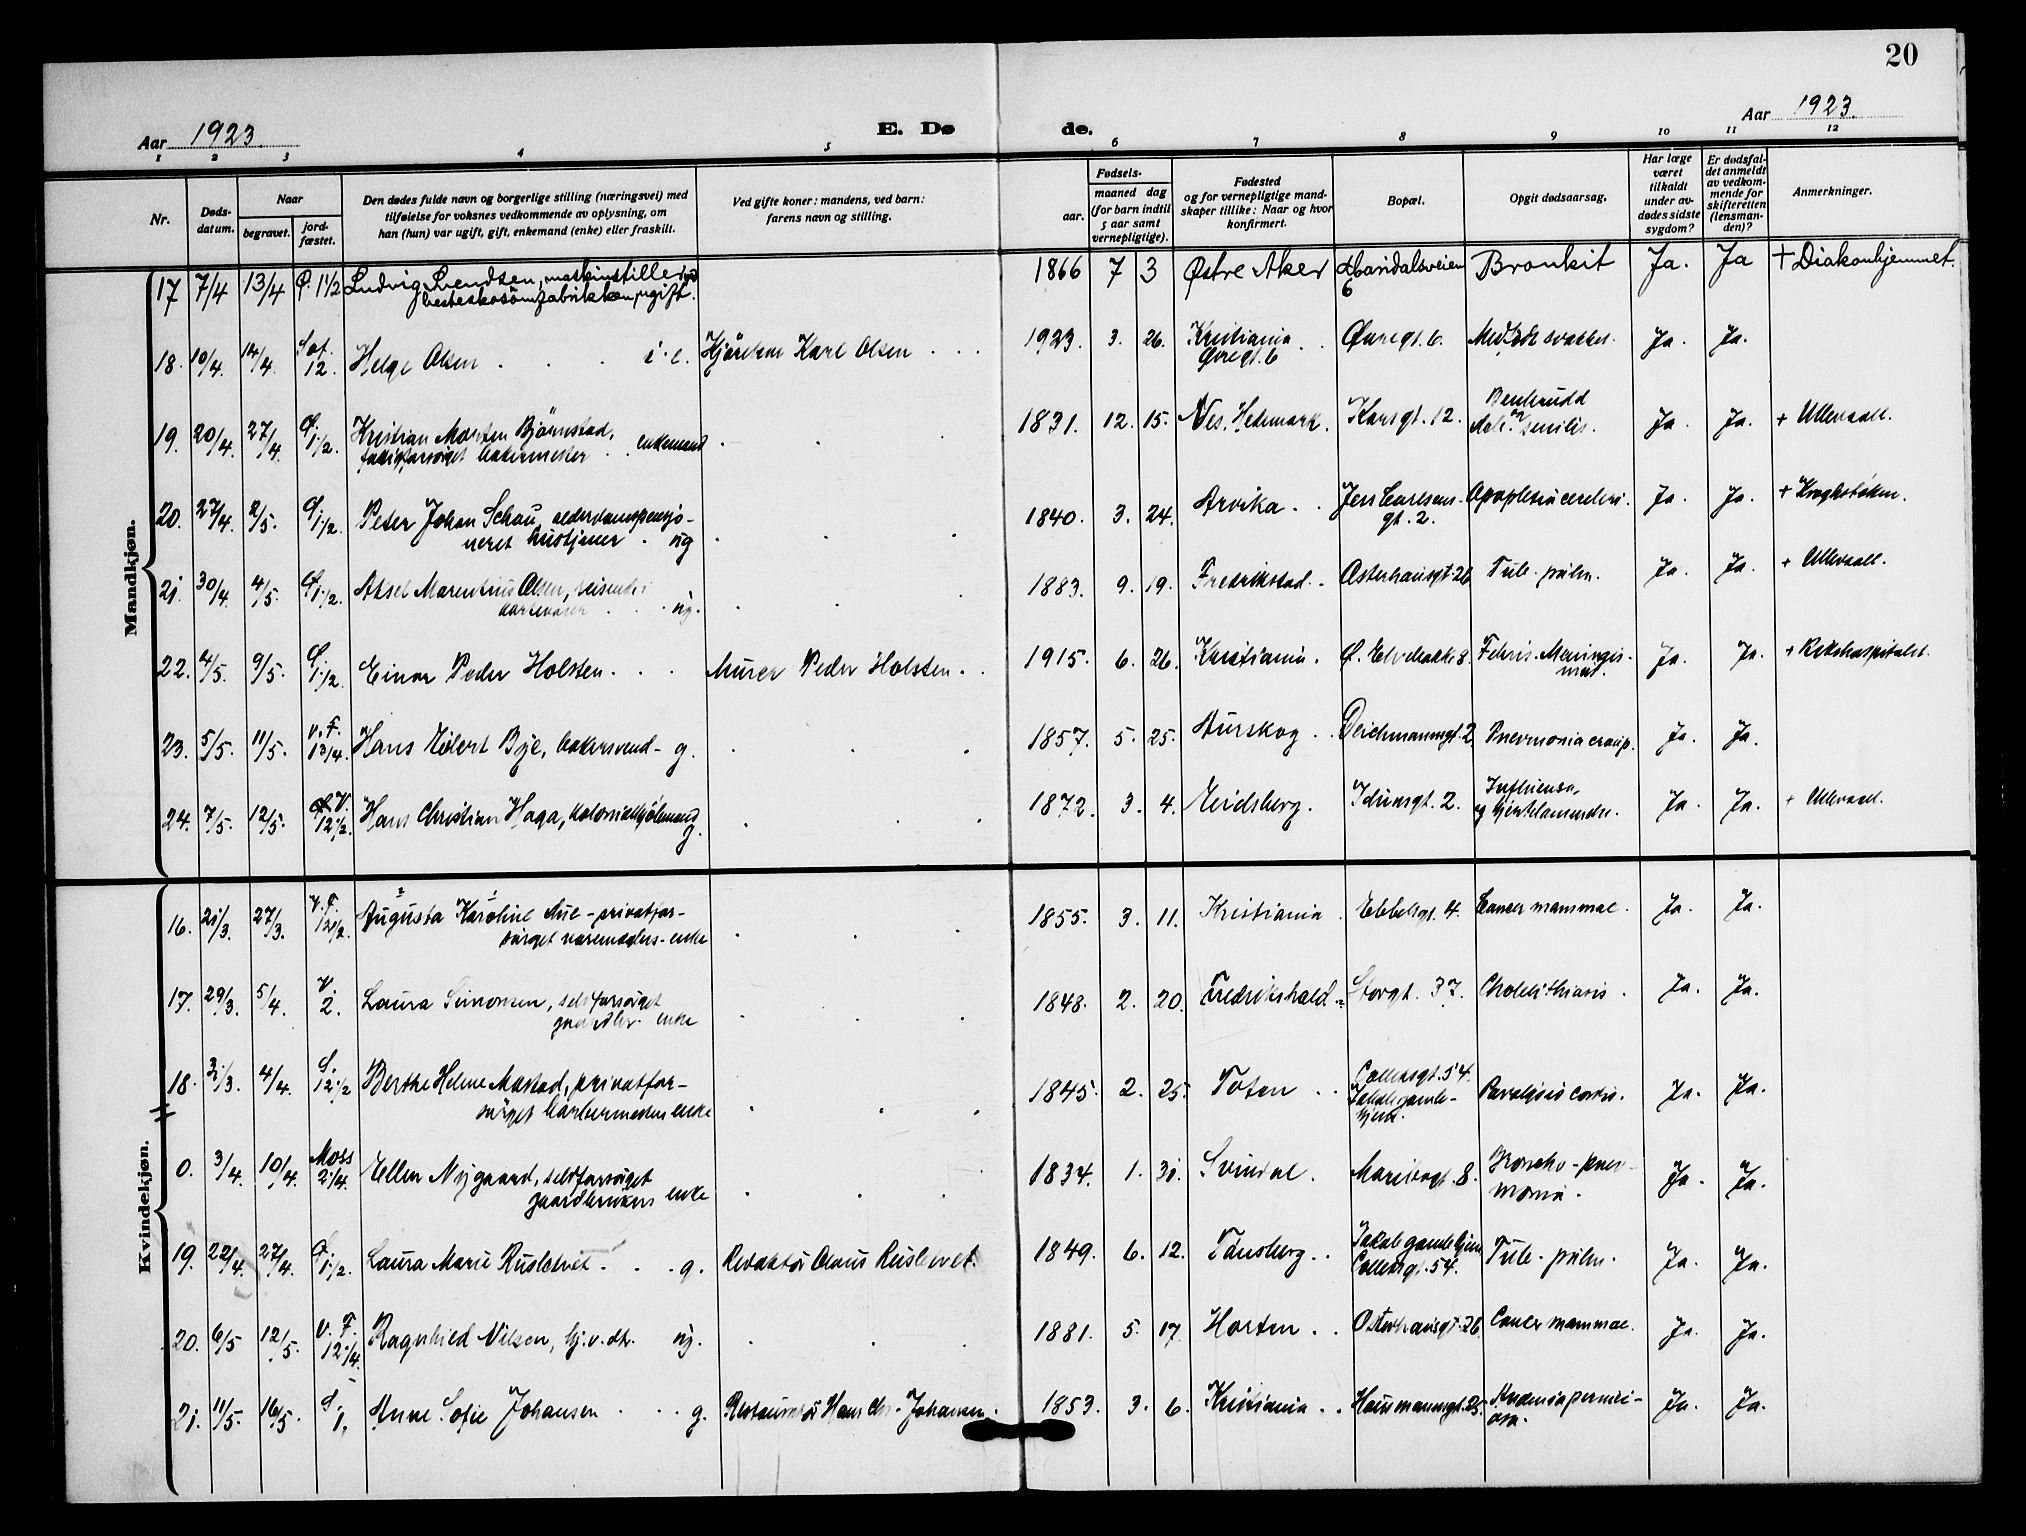 20
Aar 1923.
E. Dø
de.
Aar 1923.
1 2 3 4 5 6 7 8 9 10 11 12
Nr.
Døds-
datum.
Naar
begravet.
jord-
fæstet.
Den dødes fulde navn og borgerlige stilling (næringsvei) med
tilføielse for voksnes vedkommende av oplysning, om
han (hun) var ugift, gift, enkemand (enke) eller fraskilt.
Ved gifte koner: mandens, ved barn:
farens navn og stilling.
Fødsels-
aar.
maaned dag
(for barn indtil
5 aar samt
vernepligtige).
Fødested
og for vernepligtige mand-
skaper tillike: Naar og hvor
konfirmert.
Bopæl.
Opgit dødsaarsag.
Har læge
været
tilkaldt
under av-
dødes sidste
sygdom?
Er dødsfal-
det anmeldt
av vedkom-
mende for
skifteretten
(lensman-
den)?
Anmerkninger.
Mandkjøn.
17 7/4 13/4 Ø. 1 1/2 Ludvig Svendsen, maskinstiller ved
hesteskosømfabrikken, ugift. 1866 7 3 Østre Aker Maridalsveien
6 Bronkit Ja. Ja + Diakonhjemmet.
18. 10/4. 14/4. 12. Helge Olsen . . . Karl Olsen . . . 1923. 3. 26. Kristiania . .
Øvregt. 6 Øvregt. 6. Medfødt svakhet. Ja. Ja.
19. 20/4. 27/4. 1 1/2. Kristian Morten Bjørnstad,
bakermester . . enkemand 1831. 12. 15. Nes. Hedemark. Karsgt. 12. senilis. Ja. Ja. + Ullevaal.
20. 27/4. 2/5. 1 1/2. Peter Johan Schau, alderdomspensjo-
neret . ug 1840. 3. 24. Arvika . . Jens Carlsens-
gt. 2. Apoplexia cerebri. Ja. Ja. + Kroghstøken.
21. 30/4. 4/5. 1 1/2. Aksel Marentius Olsen, reisende i
. . . ug. 1883. 9. 19. Fredrikstad. Osterhausgt. 26 Tub. pulm. Ja. Ja. + Ullevaal.
22. 4/5. 9/5. 1 1/2. Einar Peder Holsten . . . Murer Peder Holsten . . 1915. 6. 26. Kristiania. Ø. Elvebakke 8. Ja. Ja. + Rikshospitalet.
23. 5/5. 11/5. V. F. Hans Eilert Bye, bakersvend - g. 1857. 5. 25. Aurskog . Deichmannsgt. 2 Pneumonia croup. Ja. Ja.
24. 7/5. 12/5. V.
12 1/2. Hans Christian Haga, g. 1872. 3. 4. Eidsberg. Idunsgt. 2. Influensa
og hjertelammelse. Ja. Ja. + Ullevaal.
Kvindekjøn.
16. 21/3. 27/3. V. F.
12 1/2. Augusta Karoline Aue - privatfor-
sørget enke 1855. 3. 11. Kristiania . Ebbelsgt. 4. Cancer mammae. Ja. Ja.
17. 29/3. 5/4. V.
2. Laura Simonsen, selvforsørget
enke 1848. 2. 20. Fredrikshald. Storgt. 37. Cholelithiasis . Ja. Ja.
18. 31/3. 4/4. S.
12 1/2 Berthe Helene privatfor-
sørget enke 1845. 2. 25. Toten . . Colletsgt. 54.
Jakobs gamle-
hjem. Paralysis cordis. Ja. Ja.
0. 3/4. 10/4. Moss
2 1/4. Ellen Nygaard, selvforsørget
gaardbrukers enke 1834. 1. 31. Svindal . Maribogt. 8. Broncho-pneu-
monia. Ja. Ja.
19. 22/4. 27/4. 1 1/2. Laura Marie . . . g. Redaktør Olaus 1849. 6. 12. Tønsberg . . Jakobs gamlehjem
Colletsgt. 54. Tub. pulm. Ja. Ja.
20. 6/5 12/5. V. F.
12 1/4. Ragnhild Nilsen, hj. v. dtr. ug. 1881. 5. 17. Horten . . Osterhausgt. 26 Cancer mammae. Ja. Ja.
21. 11/5. 16/5. S.
1. Anne Sofie Johansen . . . g. Restauratør Hans Chr. Johansen. 1853. 3. 6. Kristiania . . Hausmannsgt. 25. Anæmia pernici-
osa. Ja. Ja.